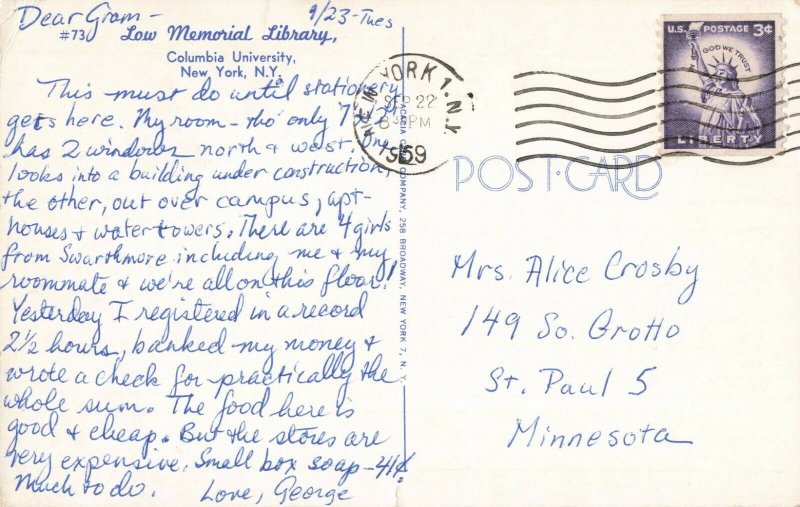 Dear Gram- 9/23-Tues
#73 Low Memorial Library,
Columbia University,
New York, N.Y.
This must do until stationery
gets here. My room - tho' only
has 2 windows north & west. One
looks into a building under construction,
the other, out over campus, apt-
houses & water towers. There are 4 girls
from Swarthmore including me & my
roommate & we're all on this floor!
Yesterday I registered in a record
2½ hours, banked my money &
wrote a check for practically the
whole sum. The food here is
good & cheap. But the stores are
very expensive. Small box soap - 41¢.
Much to do. Love, George
ACACIA CARD COMPANY, 258 BROADWAY, NEW YORK 7, N. Y.
NEW YORK 1, N.Y.
SEP 22
PM
1959
U.S. POSTAGE 3¢
IN GOD WE TRUST
LIBERTY
POST-CARD
Mrs. Alice Crosby
149 So. Grotto
St. Paul 5
Minnesota